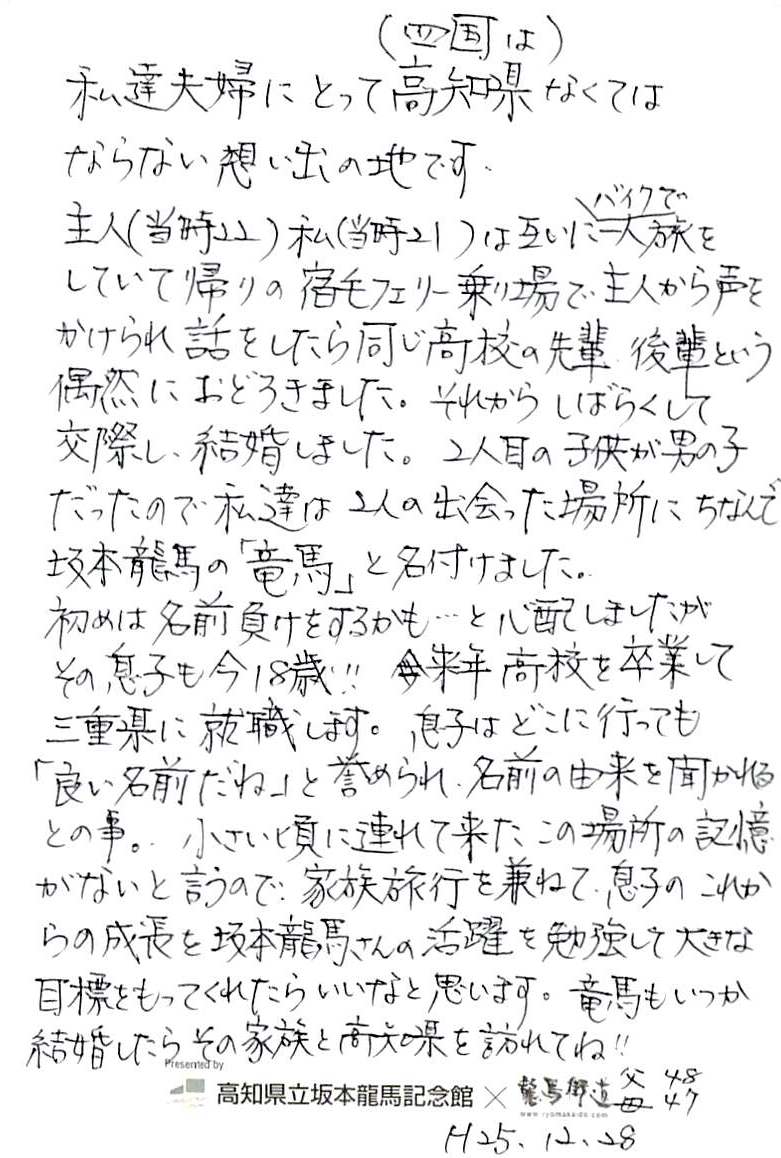 (四国は)
私達夫婦にとって高知県なくては
ならない想い出の地です.
バイクで
主人(当時22)私(当時21)は互いに一人旅を
していて帰りの宿毛フェリー乗り場で主人から声を
かけられ話をしたら同じ高校の先輩、後輩という
偶然におどろきました。それからしばらくして
交際し、結婚しました。2人目の子供が男の子
だったので私達は2人の出会った場所にちなんで
坂本龍馬の「竜馬」と名付けました。
初めは名前負けをするかも…と心配しましたが
その息子も今18歳!!来年高校を卒業して
三重県に就職します。息子はどこに行っても
「良い名前だね」と誉められ、名前の由来を聞かれる
との事。小さい頃に連れて来たこの場所の記憶
がないと言うので、家族旅行を兼ねて、息子のこれか
らの成長を坂本龍馬さんの活躍を勉強して大きな
目標をもってくれたらいいなと思います。竜馬もいつか
結婚したらその家族と高知県を訪れてね!!
Presented by
高知県立坂本龍馬記念館×龍馬街道 父48
www.ryomakaido.com 母47
H25.12.28